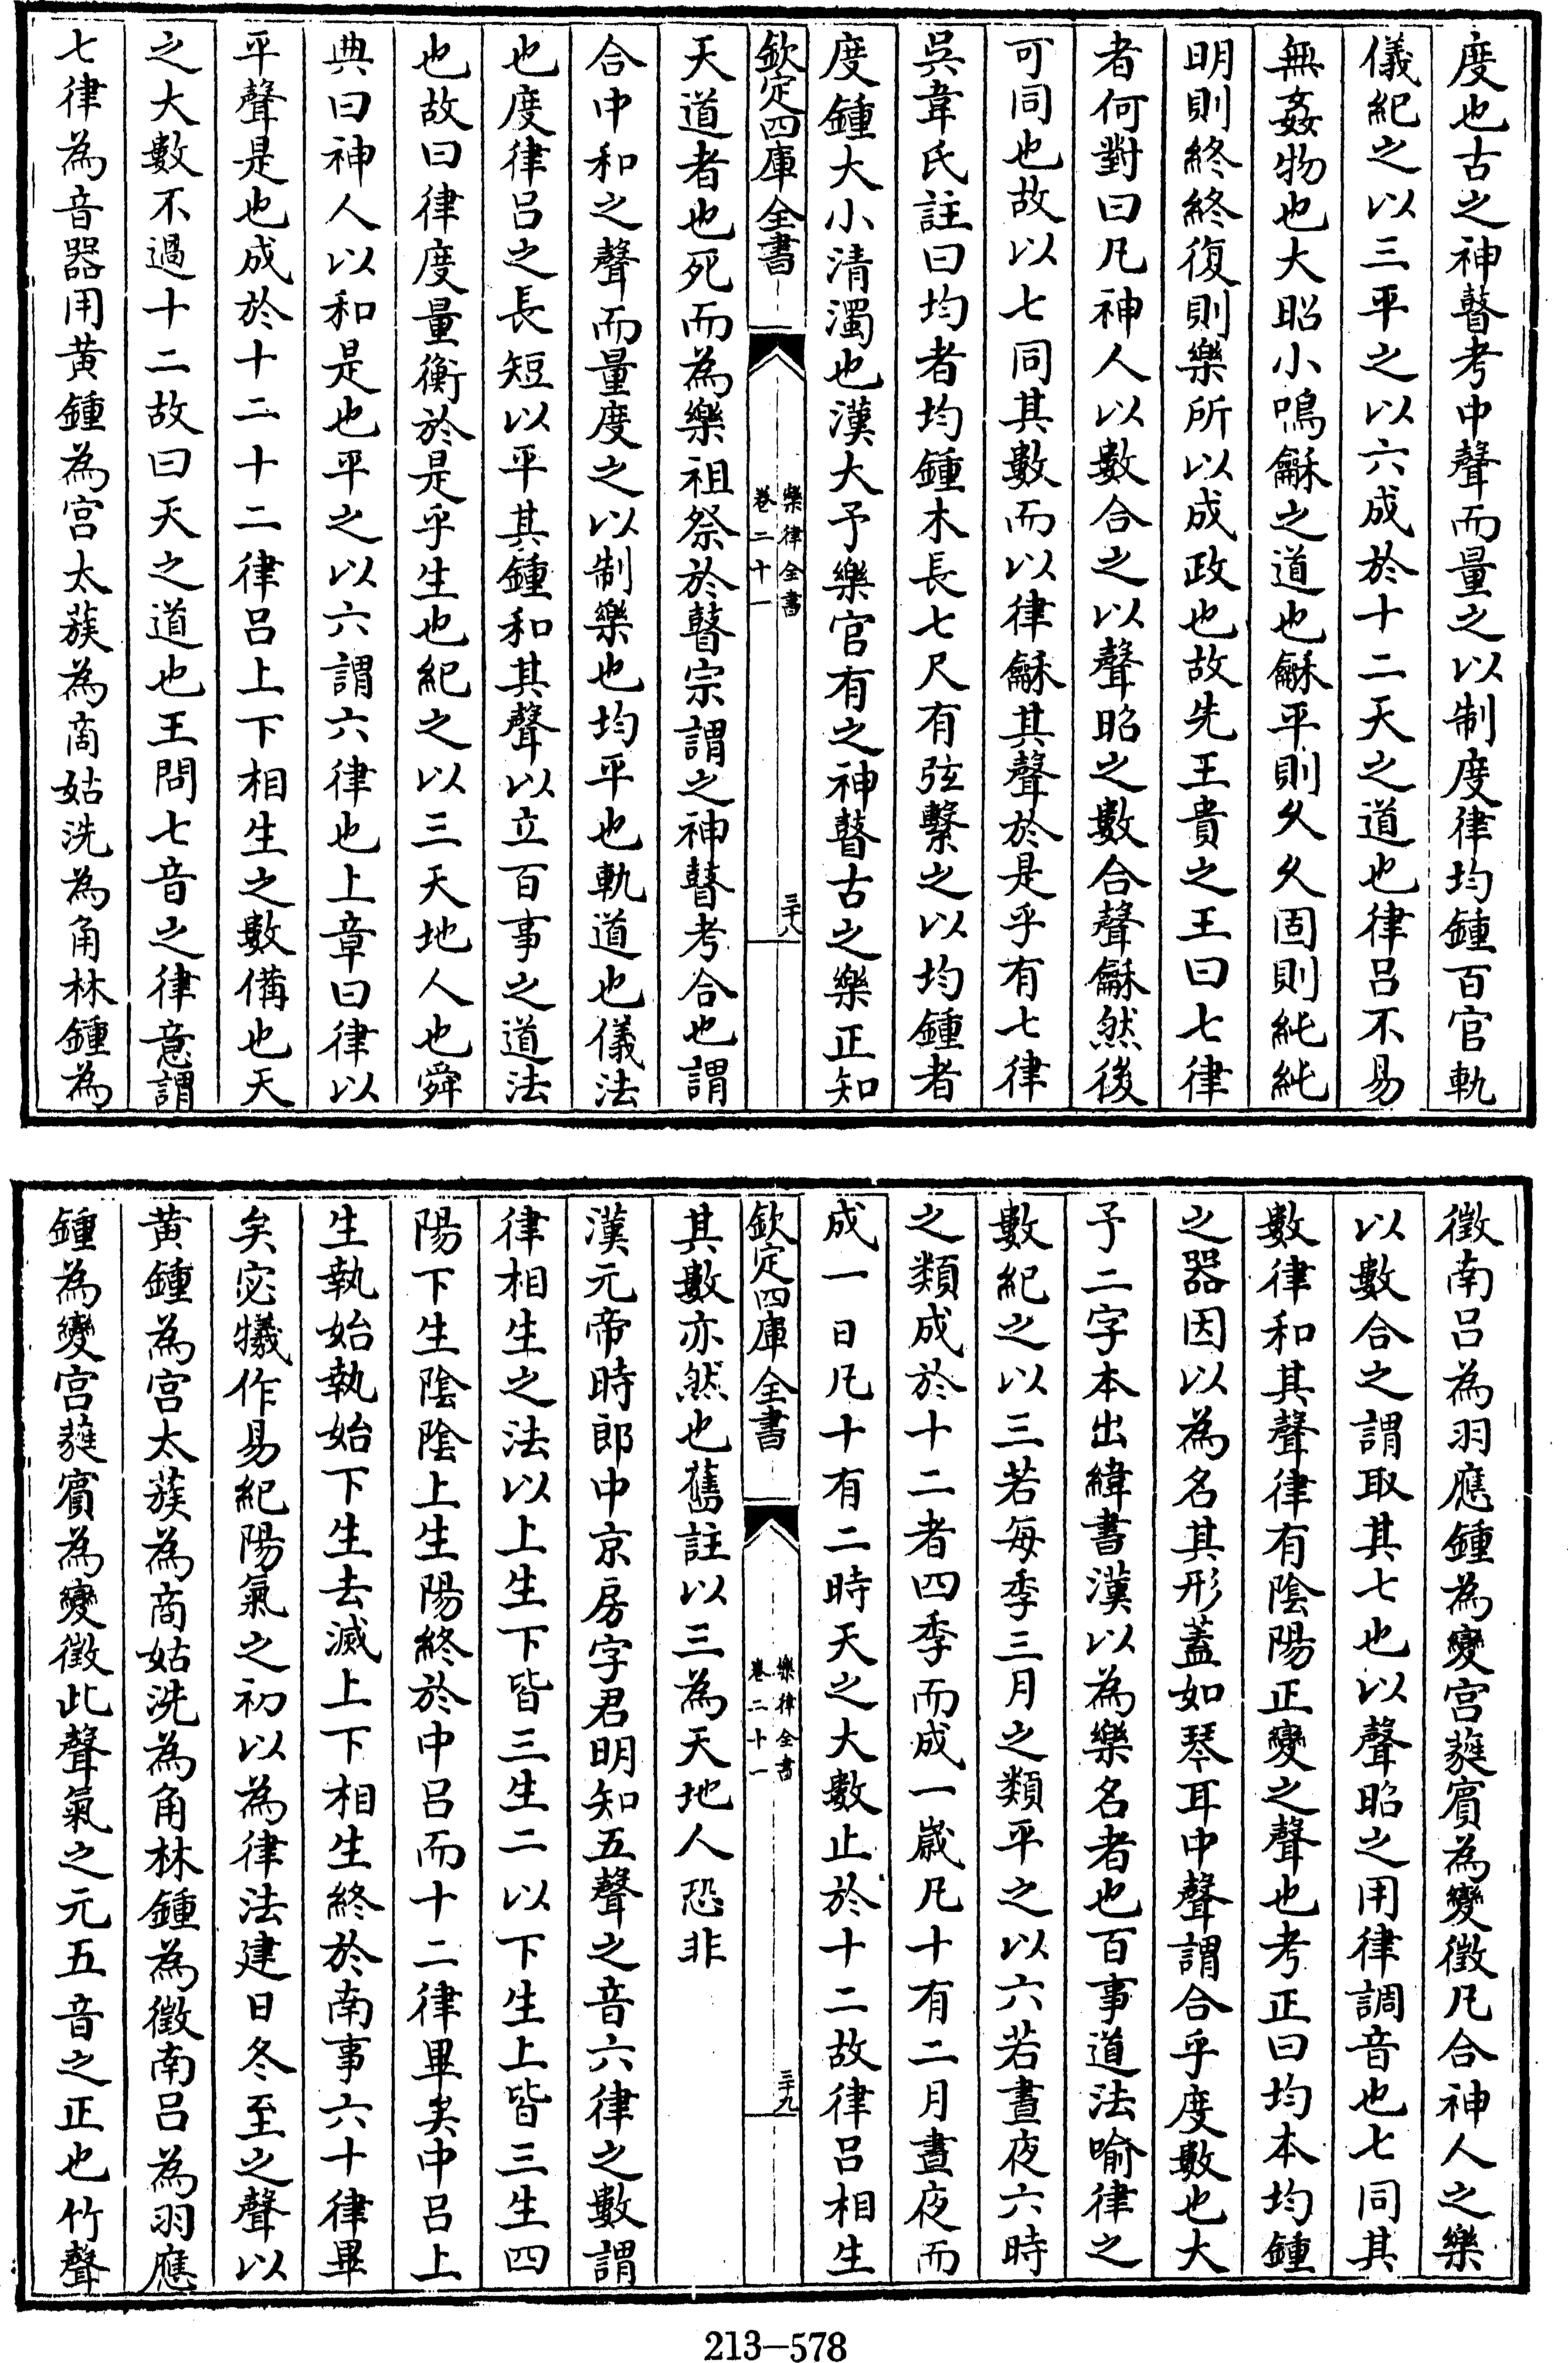 度也古之神瞽考中聲而量之以制度律均鍾百官軌
儀紀之以三平之以六成於十二天之道也律呂不易
無姦物也大昭小鳴龢之道也龢平則久久固則純純
明則終終復則樂所以成政也故先王貴之王曰七律
者何對曰凡神人以數合之以聲昭之數合聲龢然後
可同也故以七同其數而以律龢其聲於是乎有七律
吳韋氏註曰均者均鍾木長七尺有弦繫之以均鍾者
度鍾大小清濁也漢大予樂官有之神瞽古之樂正知
欽定四庫全書
樂律全書
卷二十一
三十八
天道者也死而為樂祖祭於瞽宗謂之神瞽考合也謂
合中和之聲而量度之以制樂也均平也軌道也儀法
也度律呂之長短以平其鍾和其聲以立百事之道法
也故曰律度量衡於是乎生也紀之以三天地人也舜
典曰神人以和是也平之以六謂六律也上章曰律以
平聲是也成於十二十二律呂上下相生之數備也天
之大數不過十二故曰天之道也王問七音之律意謂
七律為音器用黃鍾為宮太蔟為商姑洗為角林鍾為
徵南呂為羽應鍾為變宮蕤賓為變徵凡合神人之樂
以數合之謂取其七也以聲昭之用律調音也七同其
數律和其聲律有陰陽正變之聲也考正曰均本均鍾
之器因以為名其形蓋如琴耳中聲謂合乎度數也大
予二字本出緯書漢以為樂名者也百事道法喻律之
數紀之以三若每季三月之類平之以六若晝夜六時
之類成於十二者四季而成一嵗凡十有二月晝夜而
成一日凡十有二時天之大數止於十二故律呂相生
欽定四庫全書
樂律全書
卷二十一
三十九
其數亦然也舊註以三為天地人恐非
漢元帝時郎中京房字君明知五聲之音六律之數謂
律相生之法以上生下皆三生二以下生上皆三生四
陽下生陰陰上生陽終於中呂而十二律畢矣中呂上
生執始執始下生去滅上下相生終於南事六十律畢
矣宓犧作易紀陽氣之初以為律法建日冬至之聲以
黃鍾為宮太蔟為商姑洗為角林鍾為徵南呂為羽應
鍾為變宮蕤賓為變徵此聲氣之元五音之正也竹聲
213-578